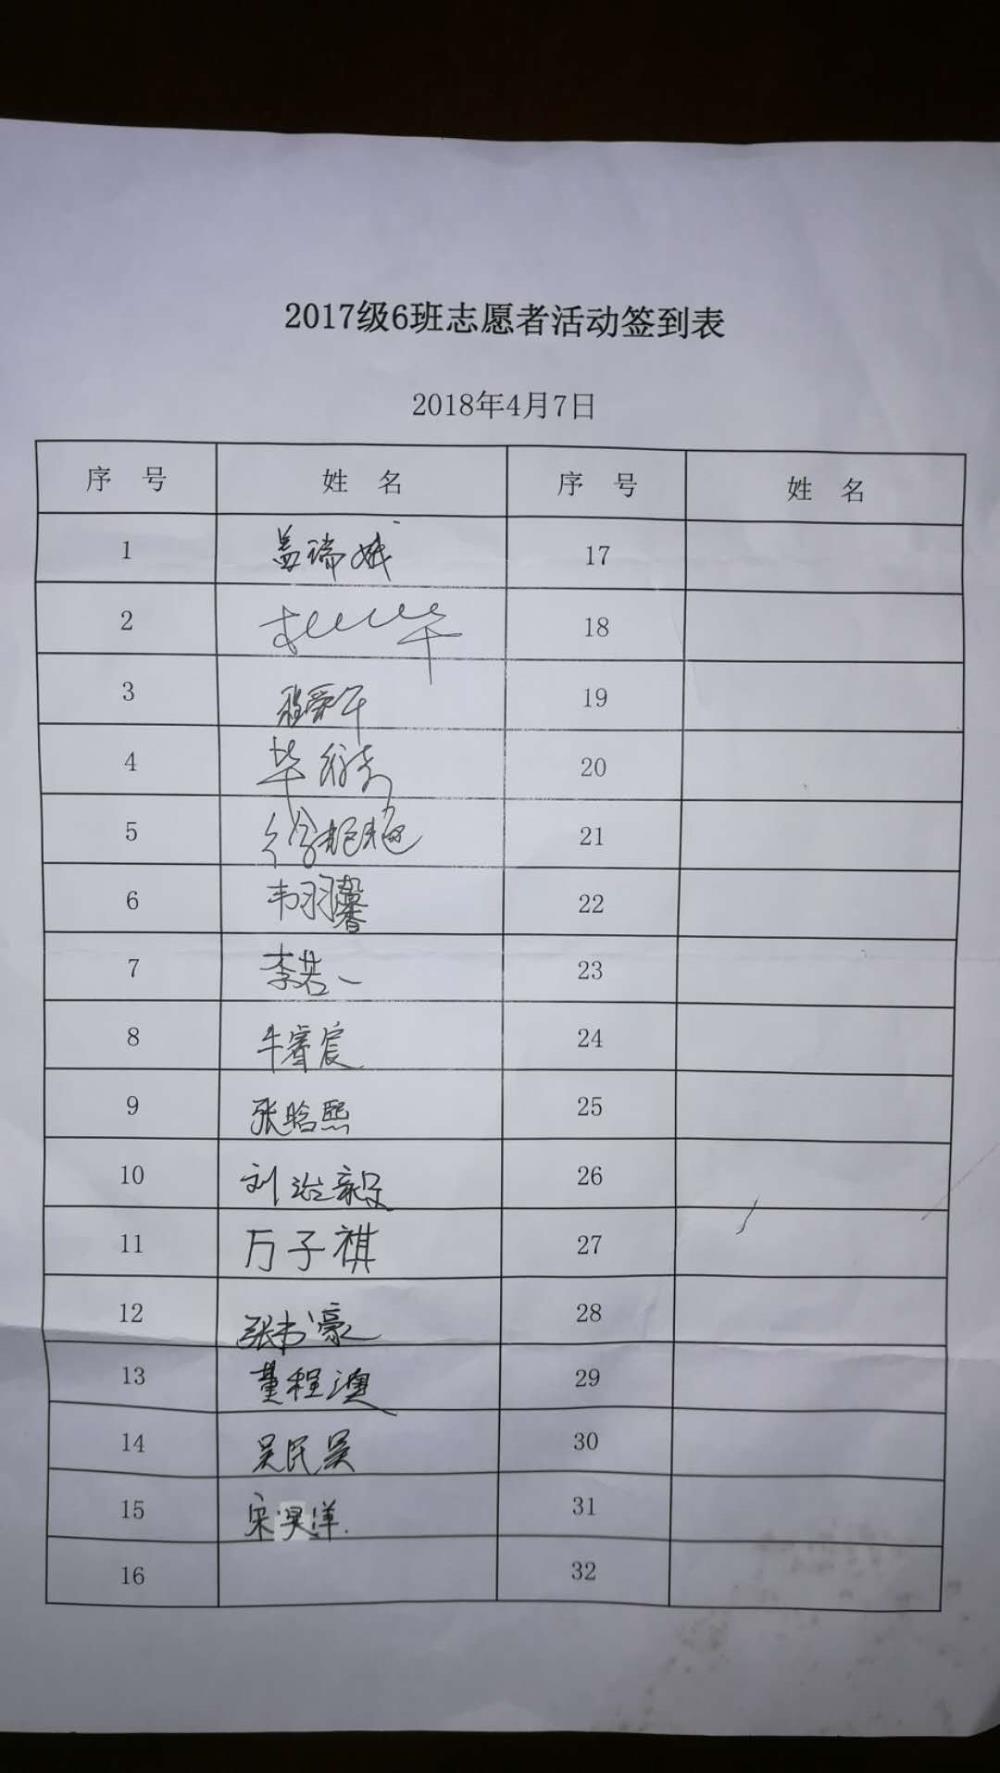 2017级6班志愿者活动签到表
2018年4月7日
序 号 姓 名 序 号 姓 名
1 盖瑞 17
2 18
3 19
4 毕 20
5 徐艳梅 21
6 韦羽馨 22
7 李若一 23
8 牛睿宸 24
9 张晗熙 25
10 刘治毅 26
11 万子祺 27
12 张书豪 28
13 董程澳 29
14 吴民昊 30
15 宋昊洋 31
16 32